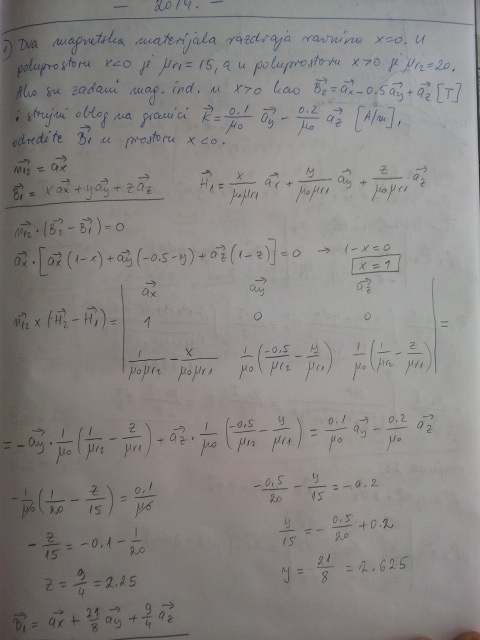 — 2014. —
1) Dva magnetska materijala razdvaja ravnina x=0. U
poluprostoru x<0 je μr1=15, a u poluprostoru x>0 je μr2=20.
Ako su zadani mag. ind. u x>0 kao B⃗2=a⃗x-0.5a⃗y+a⃗z [T]
i strujni oblog na granici K⃗=0.1/μ0 a⃗y - 0.2/μ0 a⃗z [A/m],
odredite B⃗1 u prostoru x<0.
n⃗12 = a⃗x
B⃗1 = x a⃗x + y a⃗y + z a⃗z   H⃗1 = x/(μ0μr1) a⃗x + y/(μ0μr1) a⃗y + z/(μ0μr1) a⃗z
n⃗12·(B⃗2-B⃗1)=0
a⃗x·[a⃗x(1-x)+a⃗y(-0.5-y)+a⃗z(1-z)]=0 → 1-x=0
x=1
n⃗12 x (H⃗2-H⃗1) = | a⃗x a⃗y a⃗z |
| 1 0 0 | =
| 1/(μ0μr2) - x/(μ0μr1)   1/μ0(-0.5/μr2 - y/μr1)   1/μ0(1/μr2 - z/μr1) |
= -a⃗y·1/μ0(1/μr2 - z/μr1) + a⃗z·1/μ0(-0.5/μr2 - y/μr1) = 0.1/μ0 a⃗y - 0.2/μ0 a⃗z
-1/μ0(1/20 - z/15) = 0.1/μ0   -0.5/20 - y/15 = -0.2
-z/15 = -0.1 - 1/20   y/15 = -0.5/20 + 0.2
z = 9/4 = 2.25   y = 21/8 = 2.625
B⃗1 = a⃗x + 21/8 a⃗y + 9/4 a⃗z